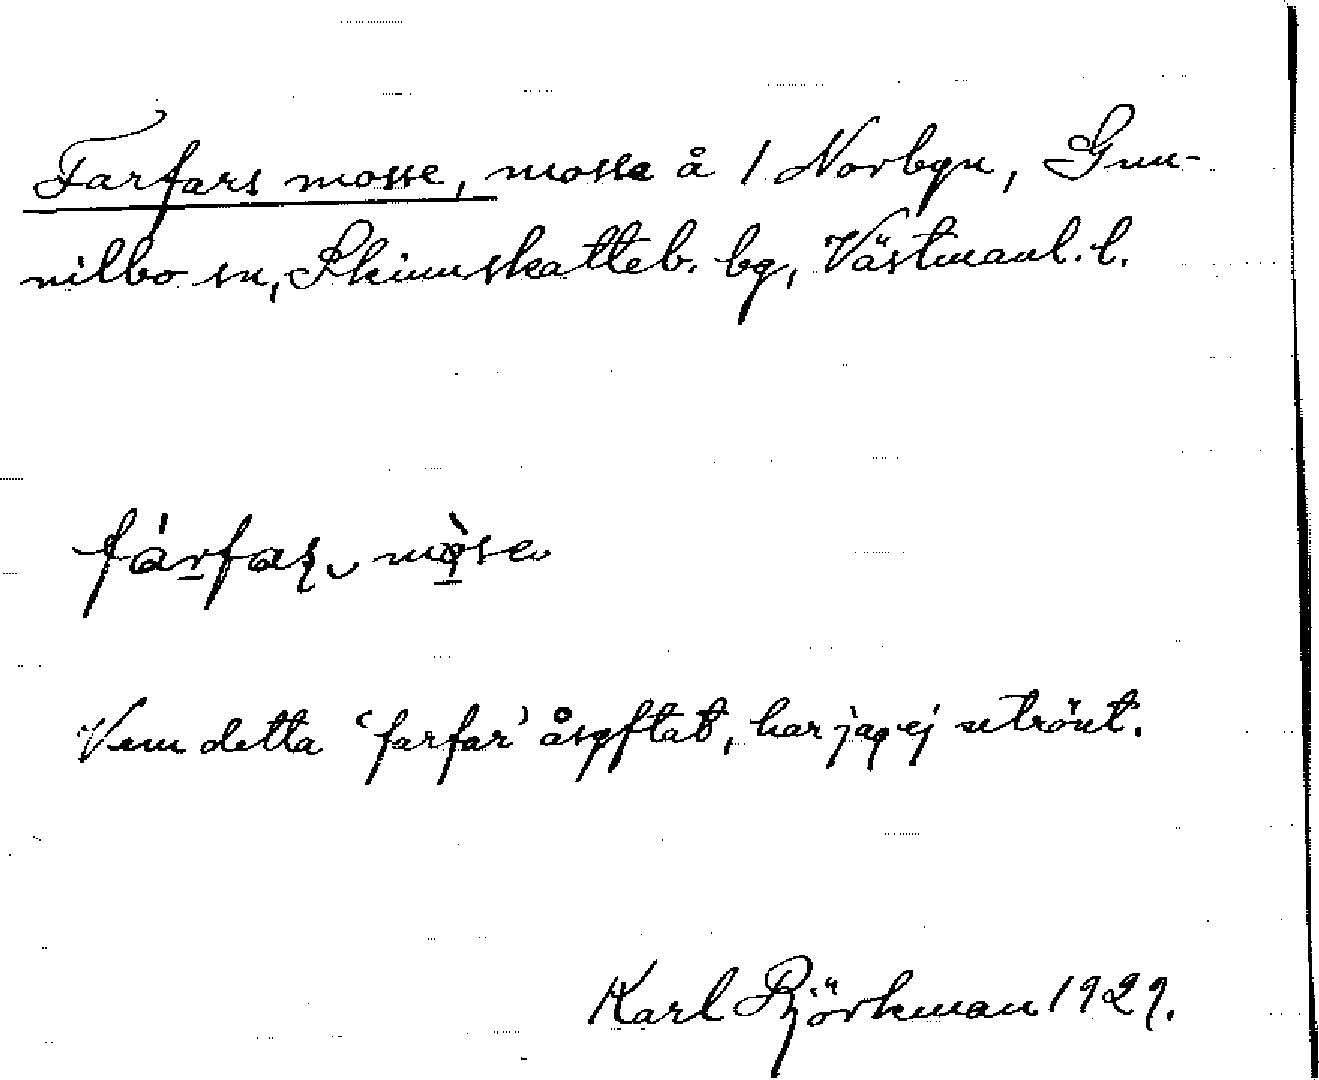 Farfars mosse, mosse å 1 Norbyn, Gun-
nilbo sn, Skinnskatteb. bg, Västmanl. l.
fárfaʂ mò̱se
Vem detta 'farfar' åsyftat, har jag ej utrönt.
Karl Björkman 1929.